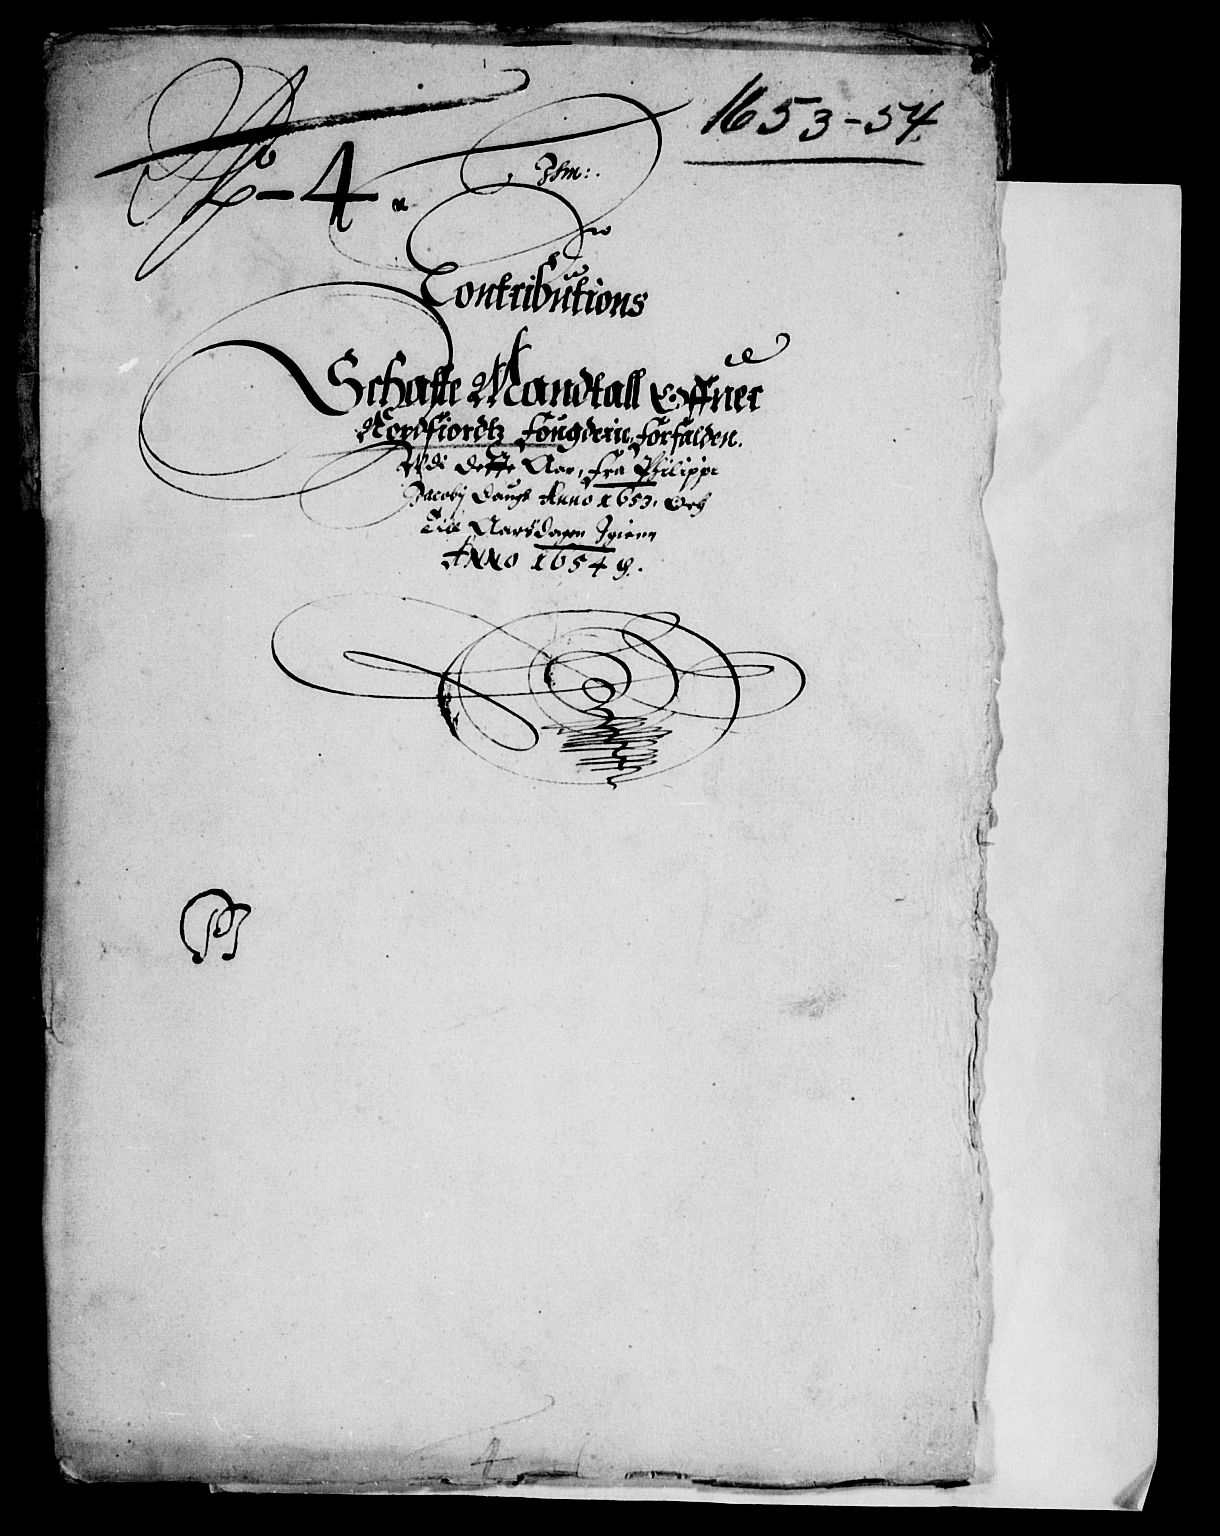 1653-54.
No- 4.
Contributions
Schatte Mandtall Offuer
Nordfiordtz fougderie, forfalden.
Udi dette Aar, fra Philippi
Jacobj daugh Anno 1653. Och
Till Aarsdagen Igienn
Anno 1654
4